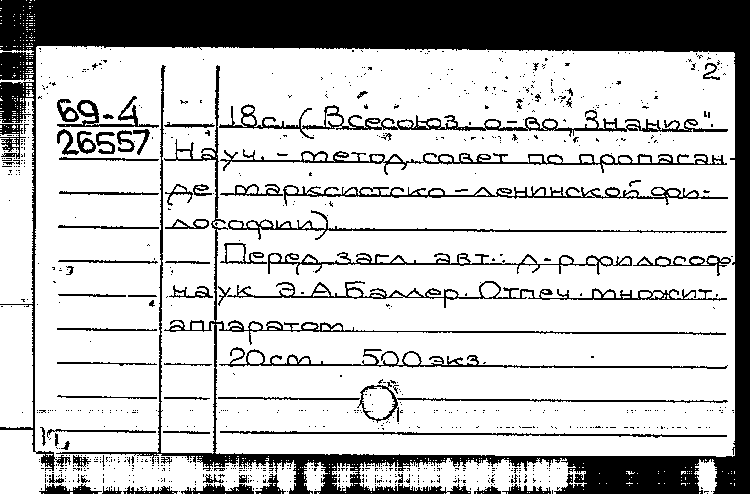 2
69-4 18с. (Всесоюз. о-во „Знание".
26557 Науч.-метод. совет по пропаган-
де марксистско-ленинской фи-
лософии).
Перед загл. авт.: д-р философ.
наук Э.А.Баллер. Отпеч. множит.
аппаратом.
20см. 500 экз.